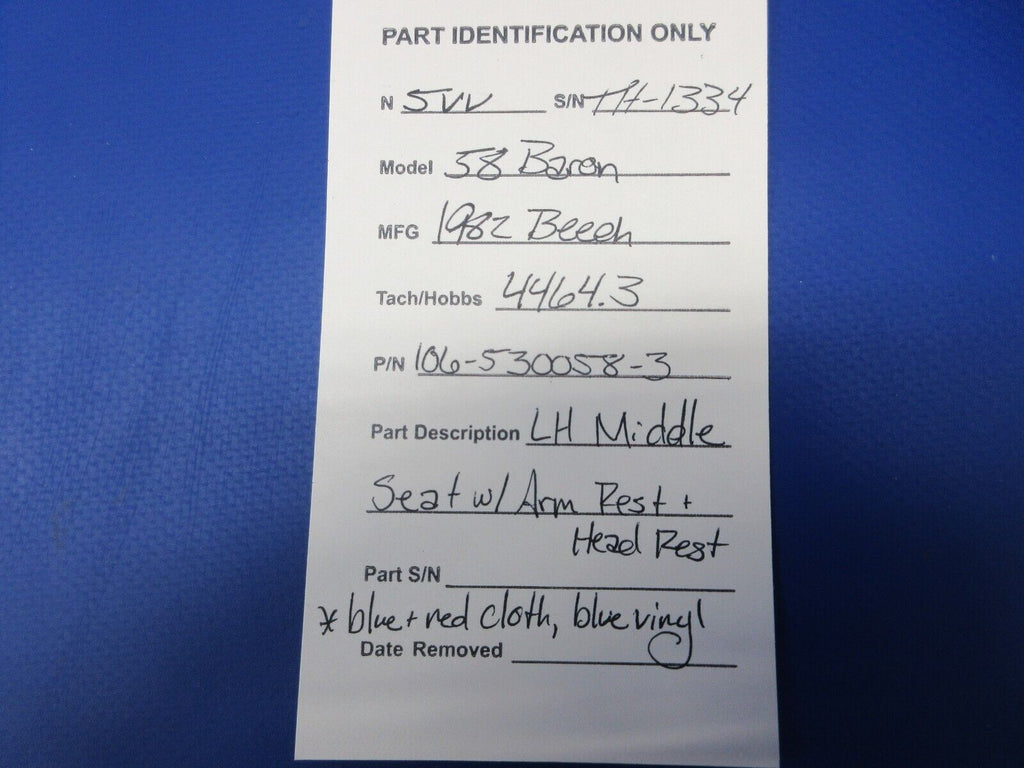 PART IDENTIFICATION ONLY
N 5VV S/N TH-1334
Model 58 Baron
MFG 1982 Beech
Tach/Hobbs 4464.3
P/N 106-530058-3
Part Description LH Middle
Seat w/ Arm Rest +
Head Rest
Part S/N
* blue + red cloth, blue vinyl
Date Removed